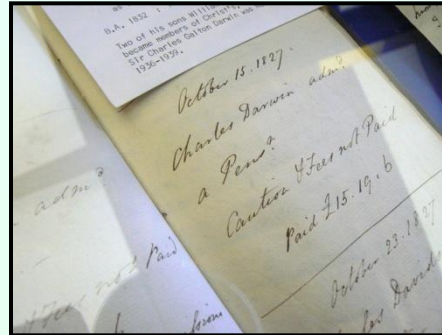 B.A. 1832
Two of his sons
became members of Christ's
Sir Charles Galton Darwin was
1936-1939.
October 15. 1827.
Charles Darwin admd
a Pensr
Caution & Fees not Paid
Paid £15.19.6
October 23. 1827
admd
Fees not Paid